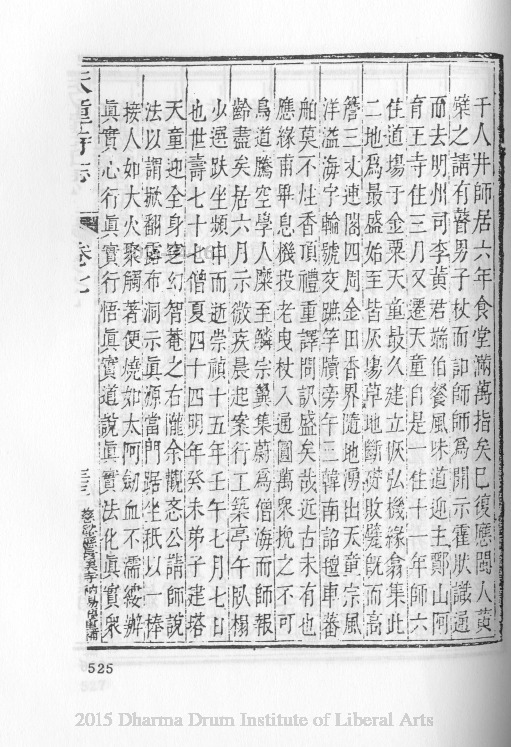 千人井師居六年食堂滿萬指矣已復應閩人黃
檗之請有瞽男子杖而詣師師為開示霍肰識過
而去明州司李黃君端伯餐風味道迎主鄮山阿
育王寺住三月又遷天童自是一住十一年師六
住道場于金粟天童最久建立恢弘機緣翕集此
二地為最盛始至皆灰場草地斷礎敗甓既而高
簷三丈連閣四周金田香界隨地湧出天童宗風
洋溢海宇輪號交蹠竿牘旁午三韓南詔檀車蕃
舶莫不炷香頂禮重譯問訊盛矣哉近古未有也
應緣甫畢息機投老曳杖入通圓萬衆挽之不可
鳥道騰空學人麋至鱗宗翼集蔚為僧海而師報
齡盡矣居六月示微疾晨起案行工築亭午臥榻
少選趺坐頻申而逝崇禎十五年壬午七月七日
也世壽七十七僧夏四十四明年癸未弟子建塔
天童迎全身窆幻智菴之右隴余觀忞公請師說
法以謂掀翻露布洞示眞源當門踞坐秖以一棒
接人如大火聚觸著便燒如太阿劒血不濡縷辦
眞實心行眞實行悟眞實道說眞實法化眞實衆
天童寺志
卷七
525
2015 Dharma Drum Institute of Liberal Arts